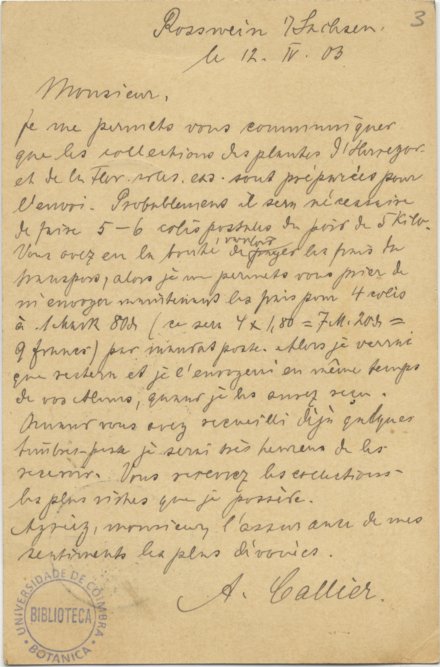 3
Rosswein i/Sachsen.
le 12. IV. 03
Monsieur,
Je me permets vous communiquer
que les collections des plantes d'Herzegov.
et de la Flor. siles. exs. sont préparées pour
l'envoi. Probablement il sera nécessaire
de faire 5–6 colis postales du poid de 5 Kilo.
Vous avez eu la bonté, de vouloir payer les frais du
transport, alors je me permets vous prier de
m'envoyer maintenant les frais pour 4 colis
à 1 Mark 80 ds (ce sera 4 x 1,80 = 7 M. 20 ds =
9 francs) par mandat poste. Alors je verrai
que restera et je l'enverrai en même temps
de vos, quand je les aurez reçu.
Quand vous avez recueilli déjà quelques
timbres-poste je serai très heureux de les
recevoir. Vous recevez les collections
les plus riches que je possède.
Agréez, monsieur, l'assurance de mes
sentiments les plus dévouées.
A. Callier.
UNIVERSIDADE DE COIMBRA
BIBLIOTECA
BOTANICA